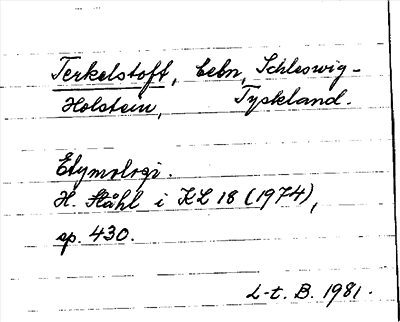 Terkelstoft, bebn, Schleswig-
Holstein, Tyskland.
Etymologi.
H. Ståhl i KL 18 (1974),
sp. 430.
L-t. B. 1981.